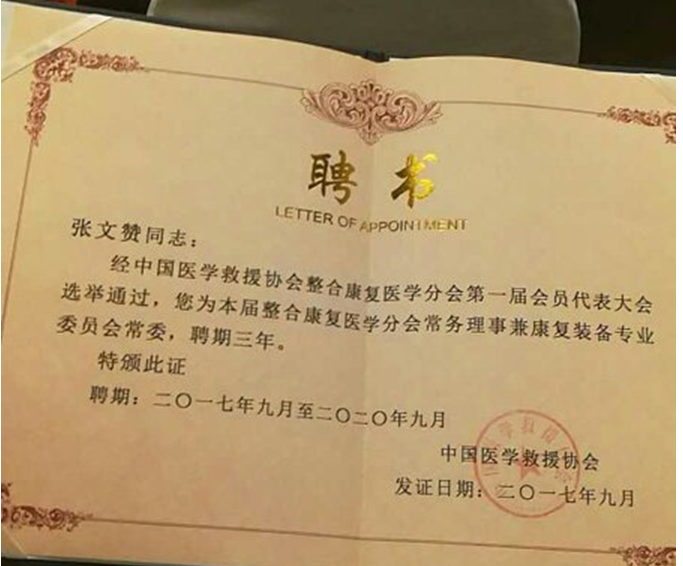 聘书
LETTER OF APPOINTMENT
张文赞同志：
经中国医学救援协会整合康复医学分会第一届会员代表大会
选举通过，您为本届整合康复医学分会常务理事兼康复装备专业
委员会常委，聘期三年。
特颁此证
聘期：二〇一七年九月至二〇二〇年九月
中国医学救援协会
发证日期：二〇一七年九月